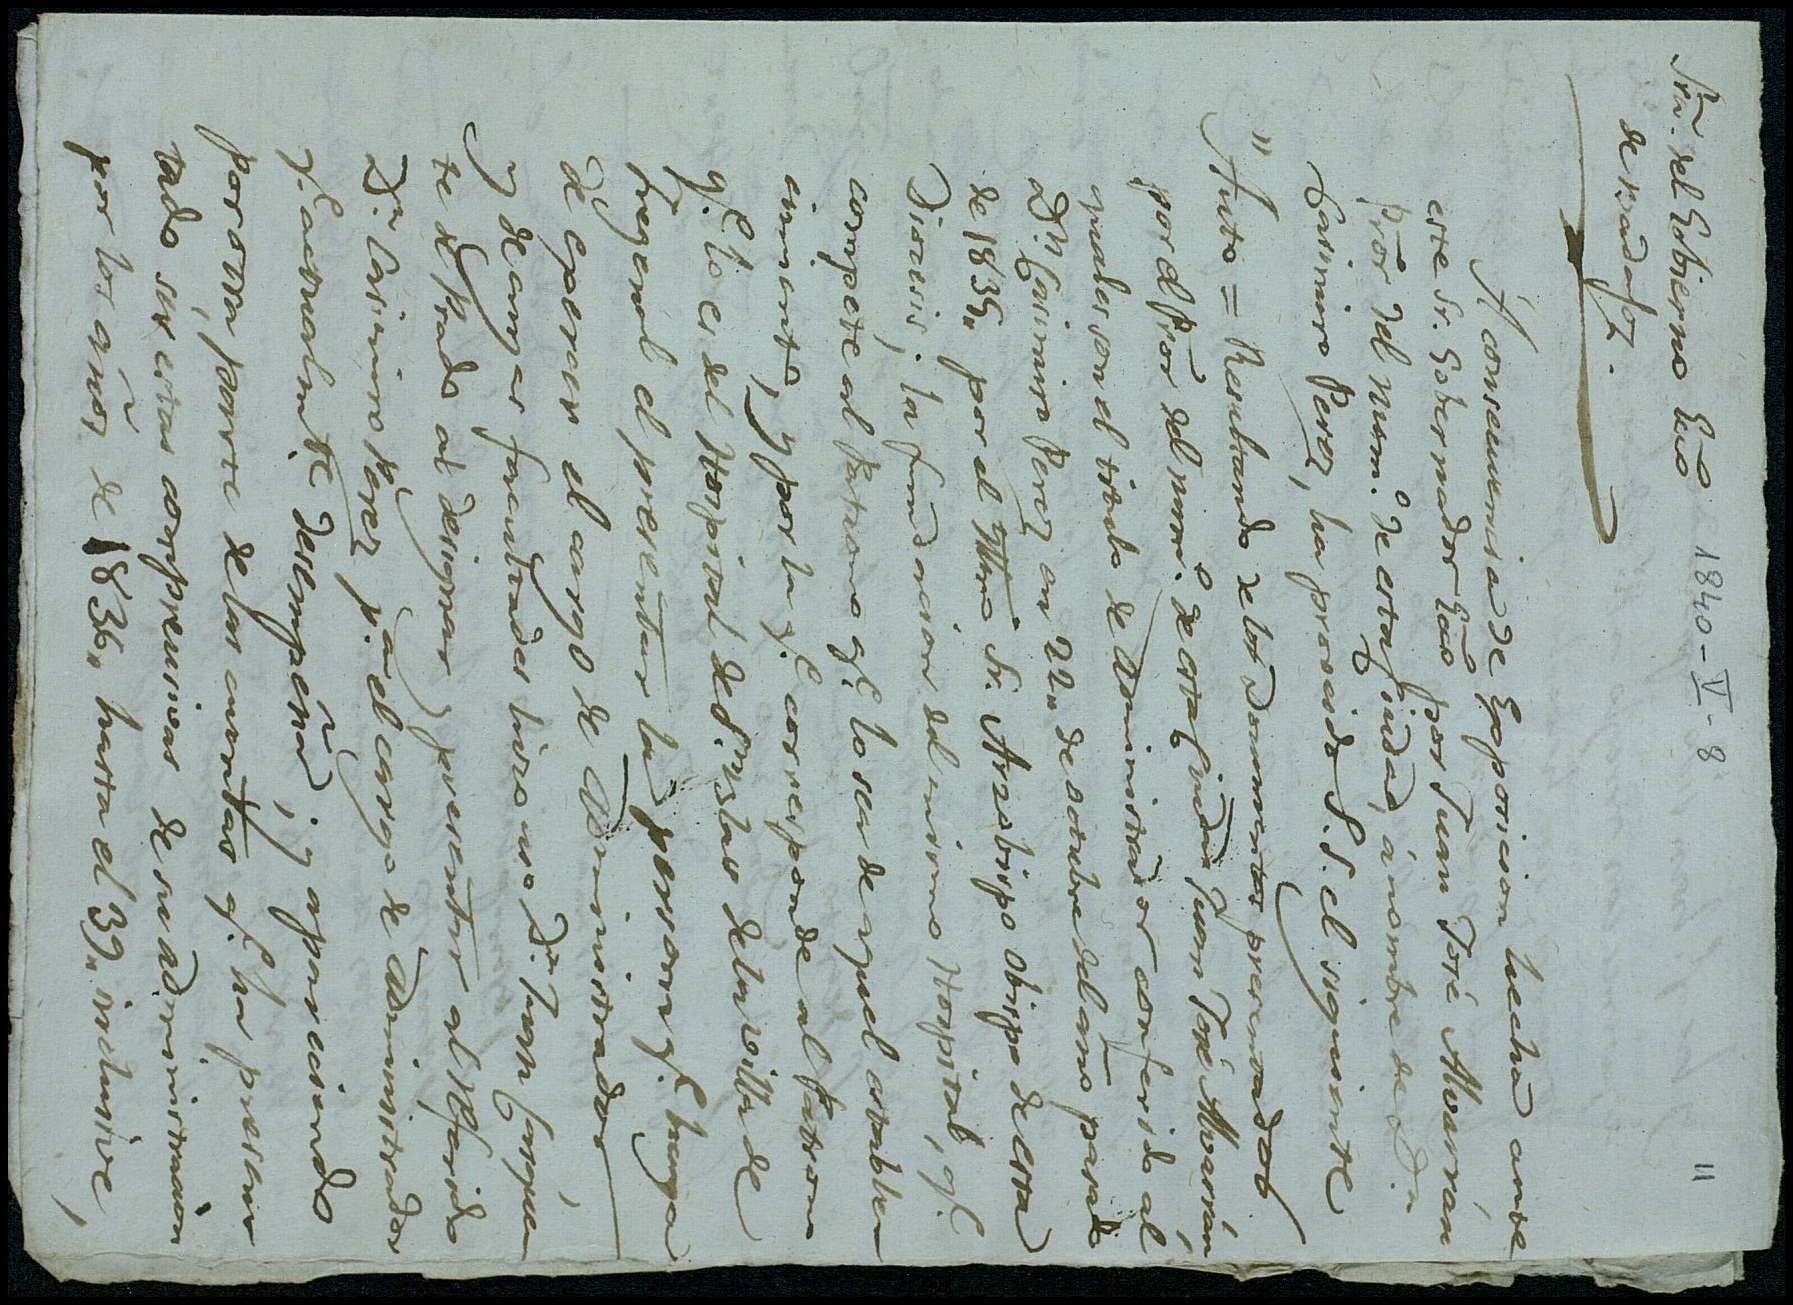 1840-V-8
11
Srã. del Gobierno Ecõ
de Badajz.
A consecuencia de Exposicion hecha ante
este Sr. Gobernador Ecõ por Juan José Alvarrán
Prõr del num.º de esta Ciudad, á nombre de D.n
Casimiro Perez, ha proveido S. S. el siguiente
" Auto = Resultando de los documentos presentados
por el Prõr del num.º de esta Ciudad Juan José Alvarrán
quales son el titulo de Administrador conferido al
D.n Casimiro Perez en 22,, de octubre del año pasado
de 1835,, por el Yltmõ Sr. Arzobispo Obispo de esta
Diocesis, la fundacion del mismo Hospital, q.e
compete al Patrono q.e lo sea de aquel establec
cimientõ, y por la q.e corresponde al Patrono
q.e lo es del Hospital de S.n Blas de la villa de
Fregenal el presentar la persona q.e haya
de exercer el cargo de Administrador
y de cuyas facultades hizo uso D.n Juan
te de Prado al designar y presentar al referido
D.n Casimiro Perez p.a el cargo de Administrador
q.e actualm.te desempeña; y apareciendo
por otra parte de las cuentas q.e ha presen
tado ser estas comprensivas de su administracion
por los años de 1836,, hasta el 39,, inclusive,